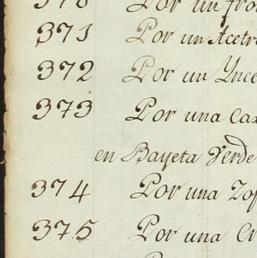 370 Por un fro
371 Por un Acetr
372 Por un Ynce
373 Por una Cax
en Bayeta Verde
374 Por una Zop
375 Por una Cr